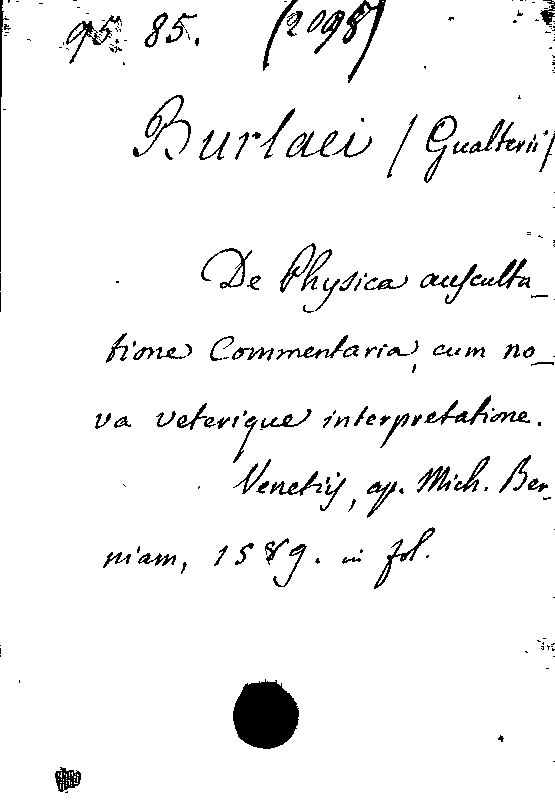 95. 85. (2098)
Burlaei / Gualterii/
De Physica ausculta_
tione Commentaria, cum no_
va veterique interpretatione.
Venetijs, ap. Mich. Ber_
niam, 1589. in fol.